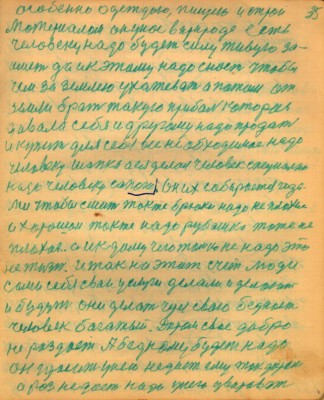 особенно одеждою, пищею и строй 35
Материалом огулное в природе Есть
человеку надо будет силу живую за-
имет да и к этому надо сност чтобы
чем за землю ухаживат а потом от
земли брат такую прибал которая
завала себя и другому надо продат
и купит для себя все необходимое надо
человеку шапка а ея делал человек специално
надо человеку сапоги. Он их собирается
чтобы сшит также брюки надо не плохие
а хорошои также надо рубашка тоже не
плохая. а их дому что токо не надо это
не то эт. И так на этит счёт Люди
сами себя сваи услуги делали и делают
и будут они делат чуя сваю бедност
человек багатыи. Этои свое добро
не раздает А бедному будет надо
он у него не дает ему
а раз не даст надо у него уворават